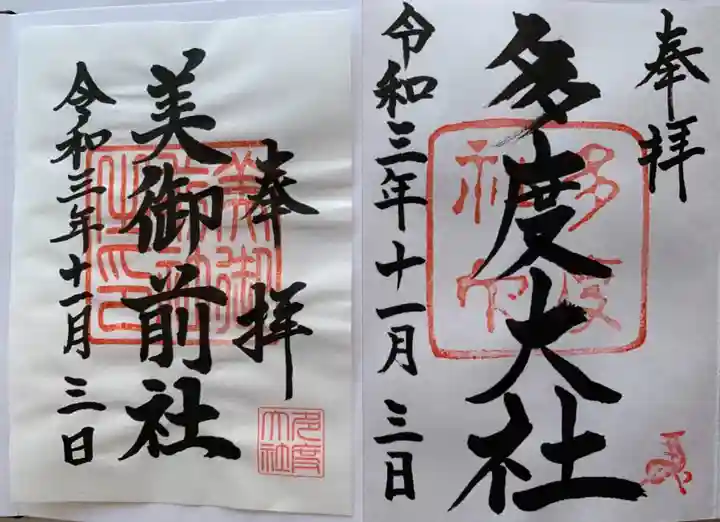 奉拝
美御前社
令和三年十一月三日
多度大社
奉拝
多度大社
多度神印
令和三年十一月三日